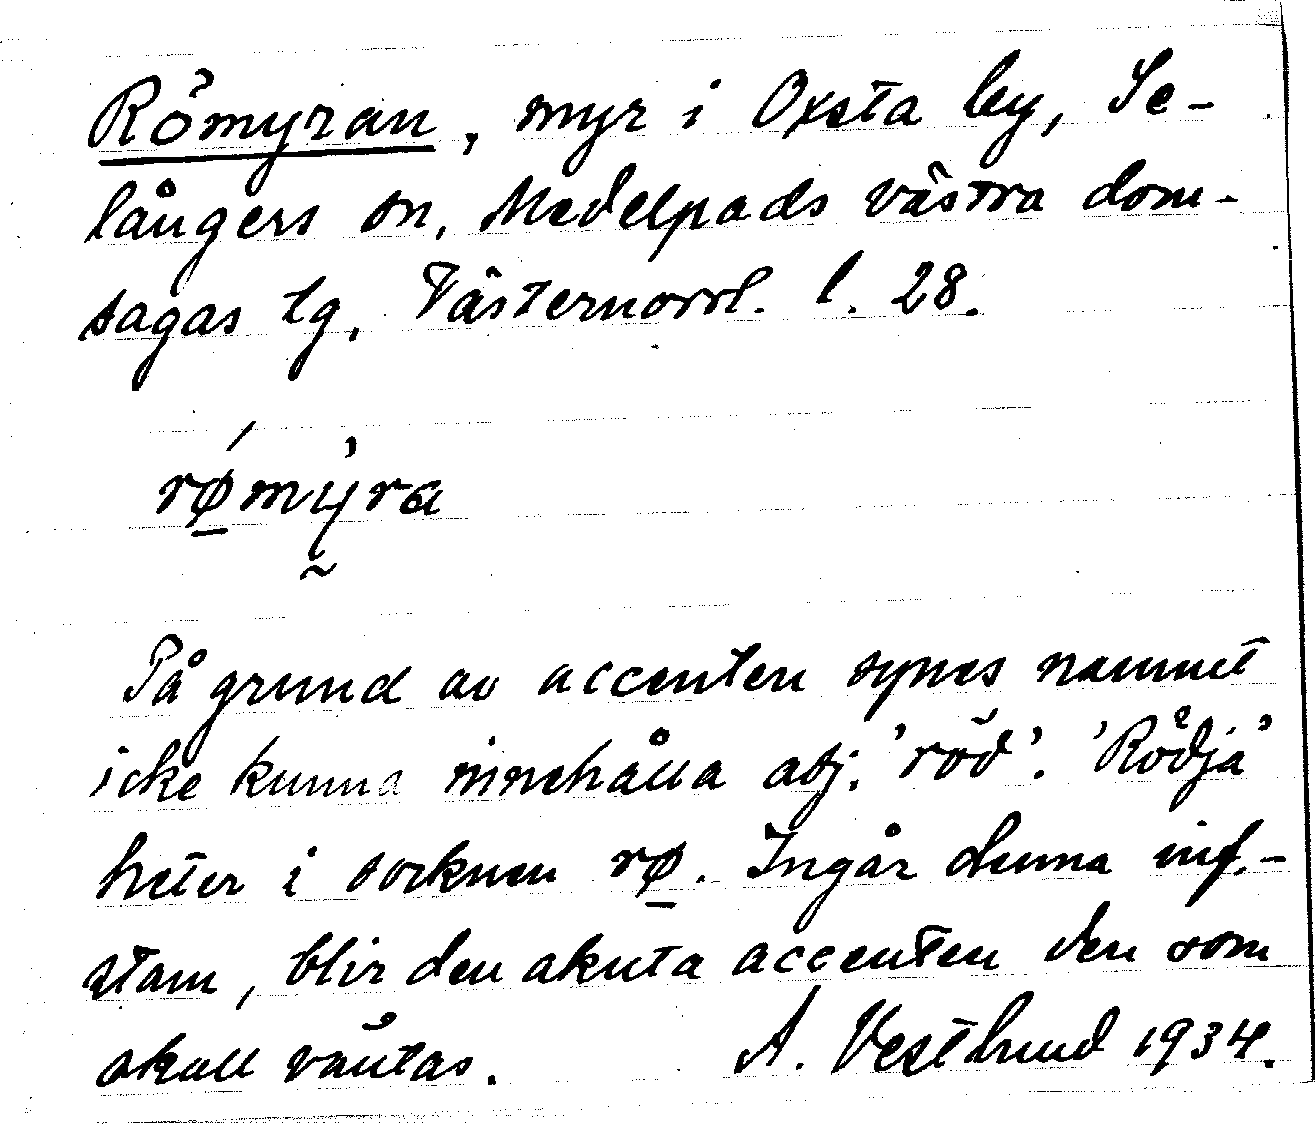 Römyran, myr i Oxsta by, Se-
långers sn, Medelpads västra dom-
sagas tg, Västernorrl. l. 28.
rǿ̠mýra
På grund av accenten synes namnet
icke kunna innehålla adj. 'röd'. 'Rödja'
heter i socknen rø̠. Ingår denna inf.-
stam, blir den akuta accenten den som
skall väntas. A. Vestlund 1934.